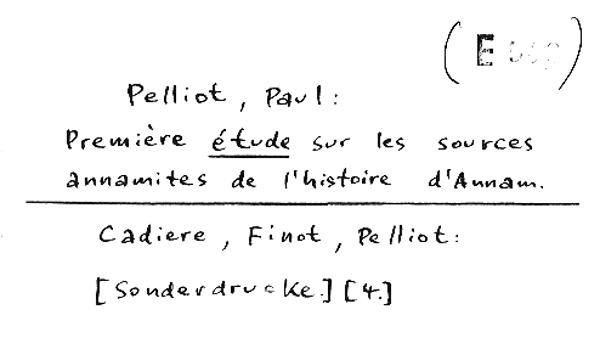 (E
Pelliot, Paul:
Première étude sur les sources
annamites de l'histoire d'Annam.
Cadiere, Finot, Pelliot:
[Sonderdrucke.] [4.]